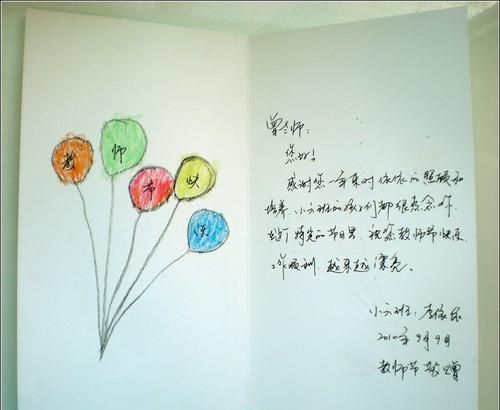 教
师
节
快
乐
曾老师：
您好！
感谢您一年来对依依的照顾和
培养。小六班的孩子们都很想念你。
在这个特定的节日里，祝您教师节快乐，
工作顺利，越来越漂亮。
小六班：李依依
2010年9月9日
教师节